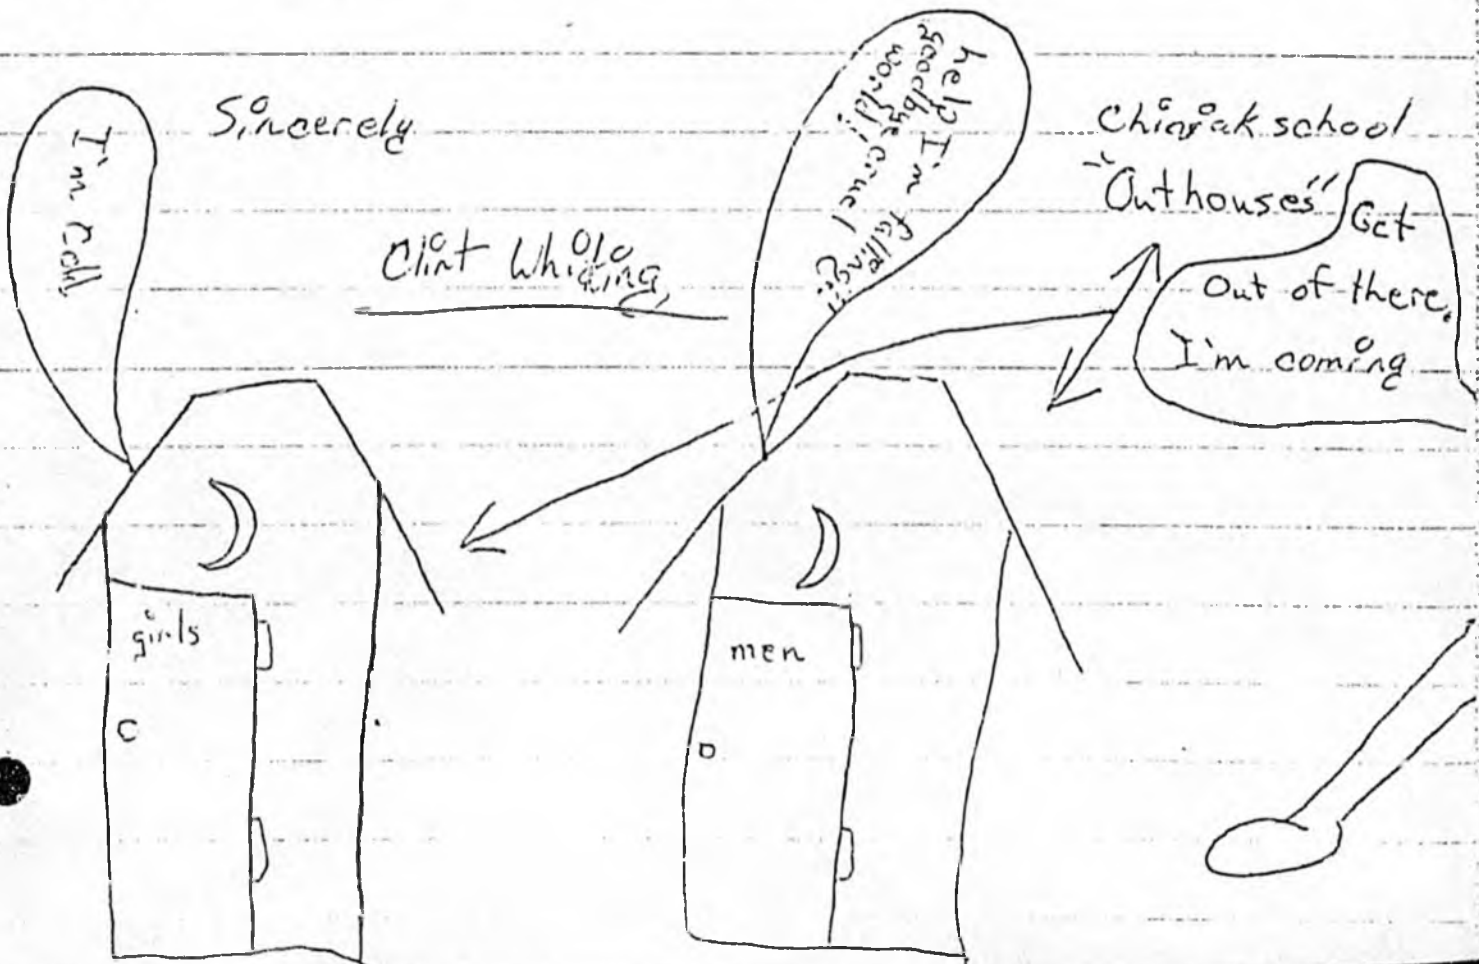 Sincerely
Clint Whiting
I'm cold
help I'm falling!!
goodbye cruel
world!
Chiniak school
"Outhouses"
Get
Out of there.
I'm coming
girls
men